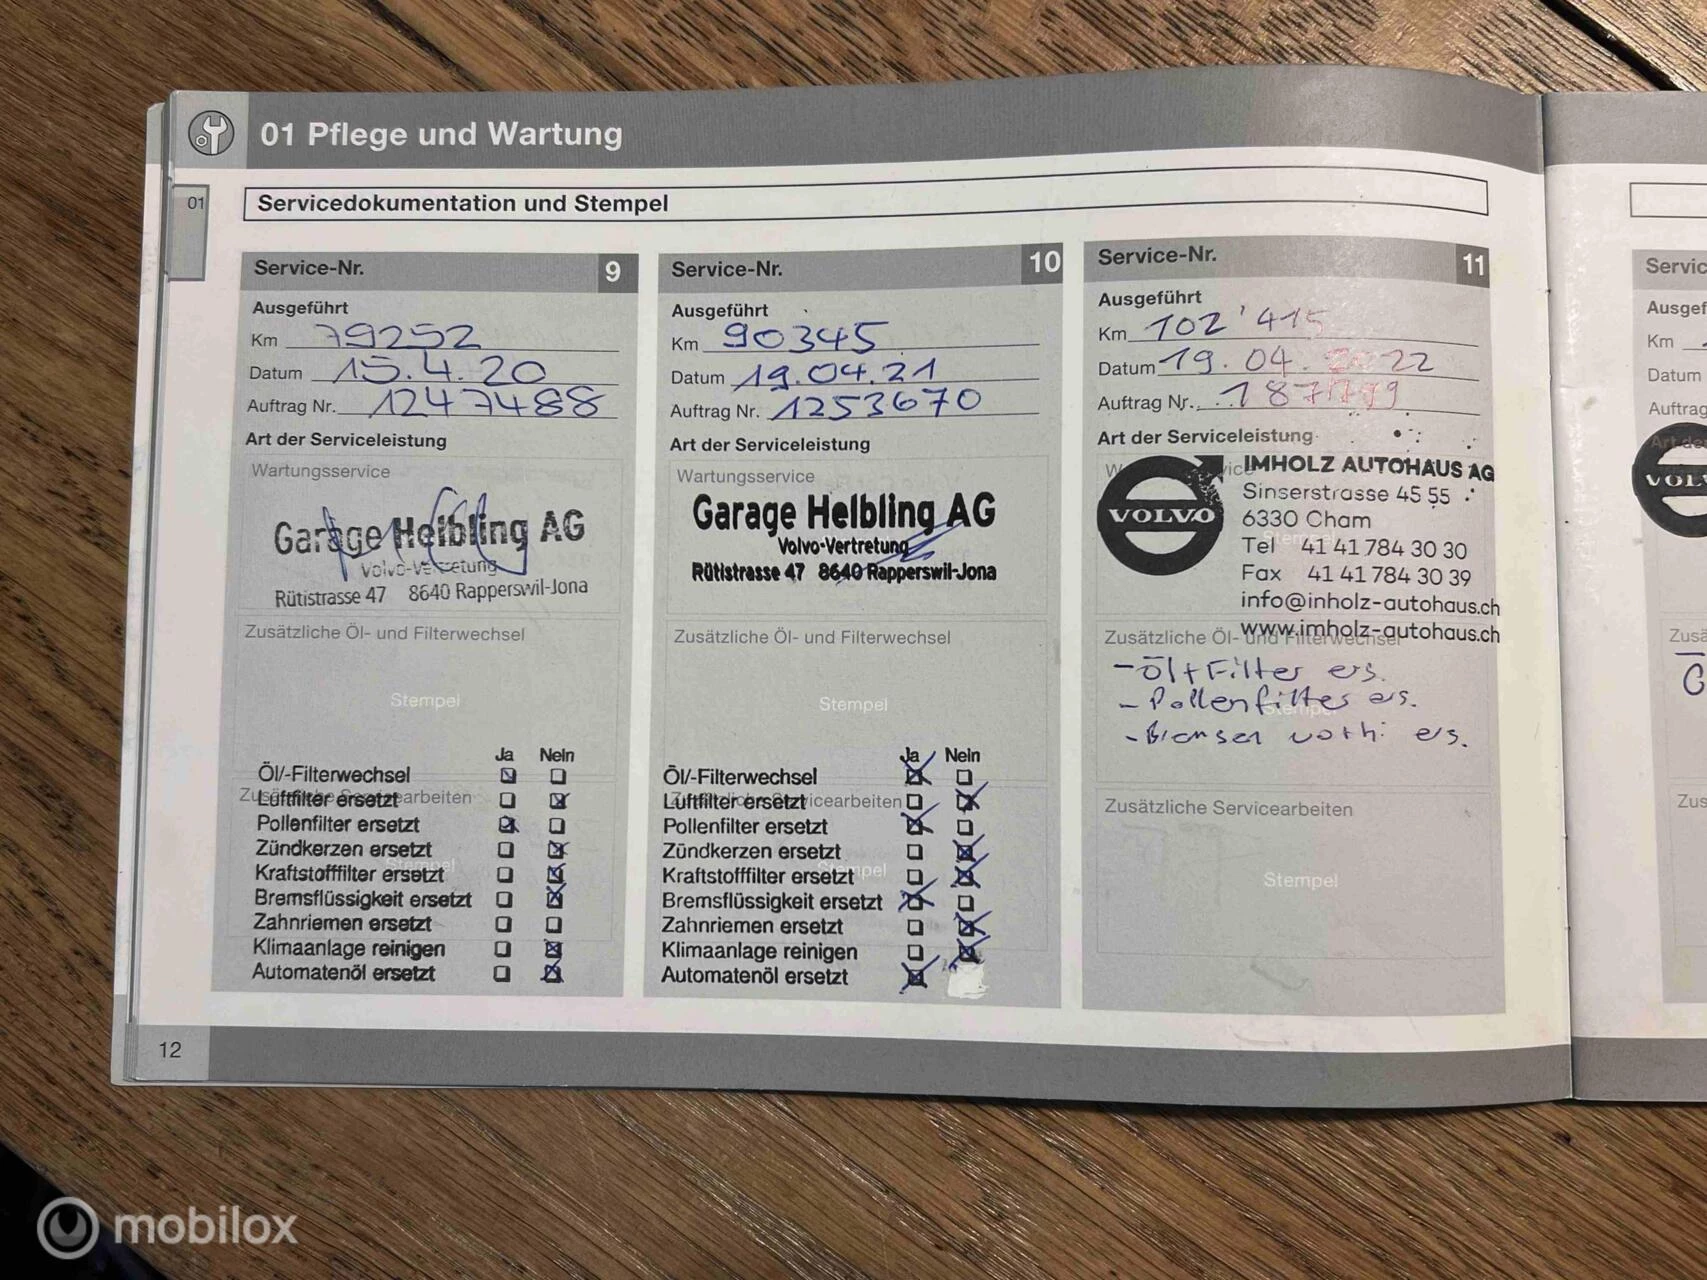 01 Pflege und Wartung
01
Servicedokumentation und Stempel
Service-Nr. 9
Ausgeführt
Km 79252
Datum 15.4.20
Auftrag Nr. 1247488
Art der Serviceleistung
Wartungsservice
Garage Helbling AG
Volvo-Vertretung
Rütistrasse 47 8640 Rapperswil-Jona
Zusätzliche Öl- und Filterwechsel
Stempel
Ja Nein
Öl/-Filterwechsel
Zusätzliche Servicearbeiten
Luftfilter ersetzt
Pollenfilter ersetzt
Zündkerzen ersetzt
Stempel
Kraftstofffilter ersetzt
Bremsflüssigkeit ersetzt
Zahnriemen ersetzt
Klimaanlage reinigen
Automatenöl ersetzt
Service-Nr. 10
Ausgeführt
Km 90345
Datum 19.04.21
Auftrag Nr. 1253670
Art der Serviceleistung
Wartungsservice
Garage Helbling AG
Volvo-Vertretung
Rütistrasse 47 8640 Rapperswil-Jona
Zusätzliche Öl- und Filterwechsel
Stempel
Ja Nein
Öl/-Filterwechsel
Zusätzliche Servicearbeiten
Luftfilter ersetzt
Pollenfilter ersetzt
Zündkerzen ersetzt
Stempel
Kraftstofffilter ersetzt
Bremsflüssigkeit ersetzt
Zahnriemen ersetzt
Klimaanlage reinigen
Automatenöl ersetzt
Service-Nr. 11
Ausgeführt
Km 102'415
Datum 19.04.2022
Auftrag Nr.
Art der Serviceleistung
VOLVO
IMHOLZ AUTOHAUS AG
Sinserstrasse 45 55
6330 Cham
Tel 41 41 784 30 30
Fax 41 41 784 30 39
info@inholz-autohaus.ch
www.imholz-autohaus.ch
Zusätzliche Öl- und Filterwechsel
-Öl+Filter ers.
-Pollenfilter ers.
-Bremsen vorh: ers.
Stempel
Zusätzliche Servicearbeiten
Stempel
Servic
Ausgef
Km
Datum
Auftrag
VOLV
Zusä
Zus
12
mobilox